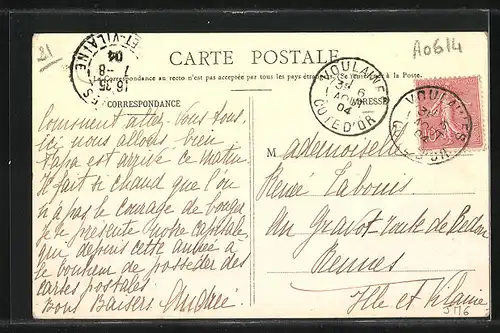 21
ET-VILAINE
04
8
16 35
CARTE POSTALE
A0614
La Correspondance au recto n'est pas acceptée par tous les pays étrangers. Se renseigner à la Poste.
CORRESPONDANCE
ADRESSE
VOULAINES
6
AOUT
04
COTE D'OR
VOULAINES
COTE D'OR
Comment allez Vous tous,
Ici nous allons bien
Papa est arrivé ce matin
Il fait si chaud que l'on
n'a pas le courage de bouger
Je te présente notre capitale
qui depuis cette année à
le bonheur de posséder des
cartes postales
Bons Baisers Andrée
Mademoiselle
Renée Labouis
Au Gravot route de Redon
Rennes
Ille et Vilaine